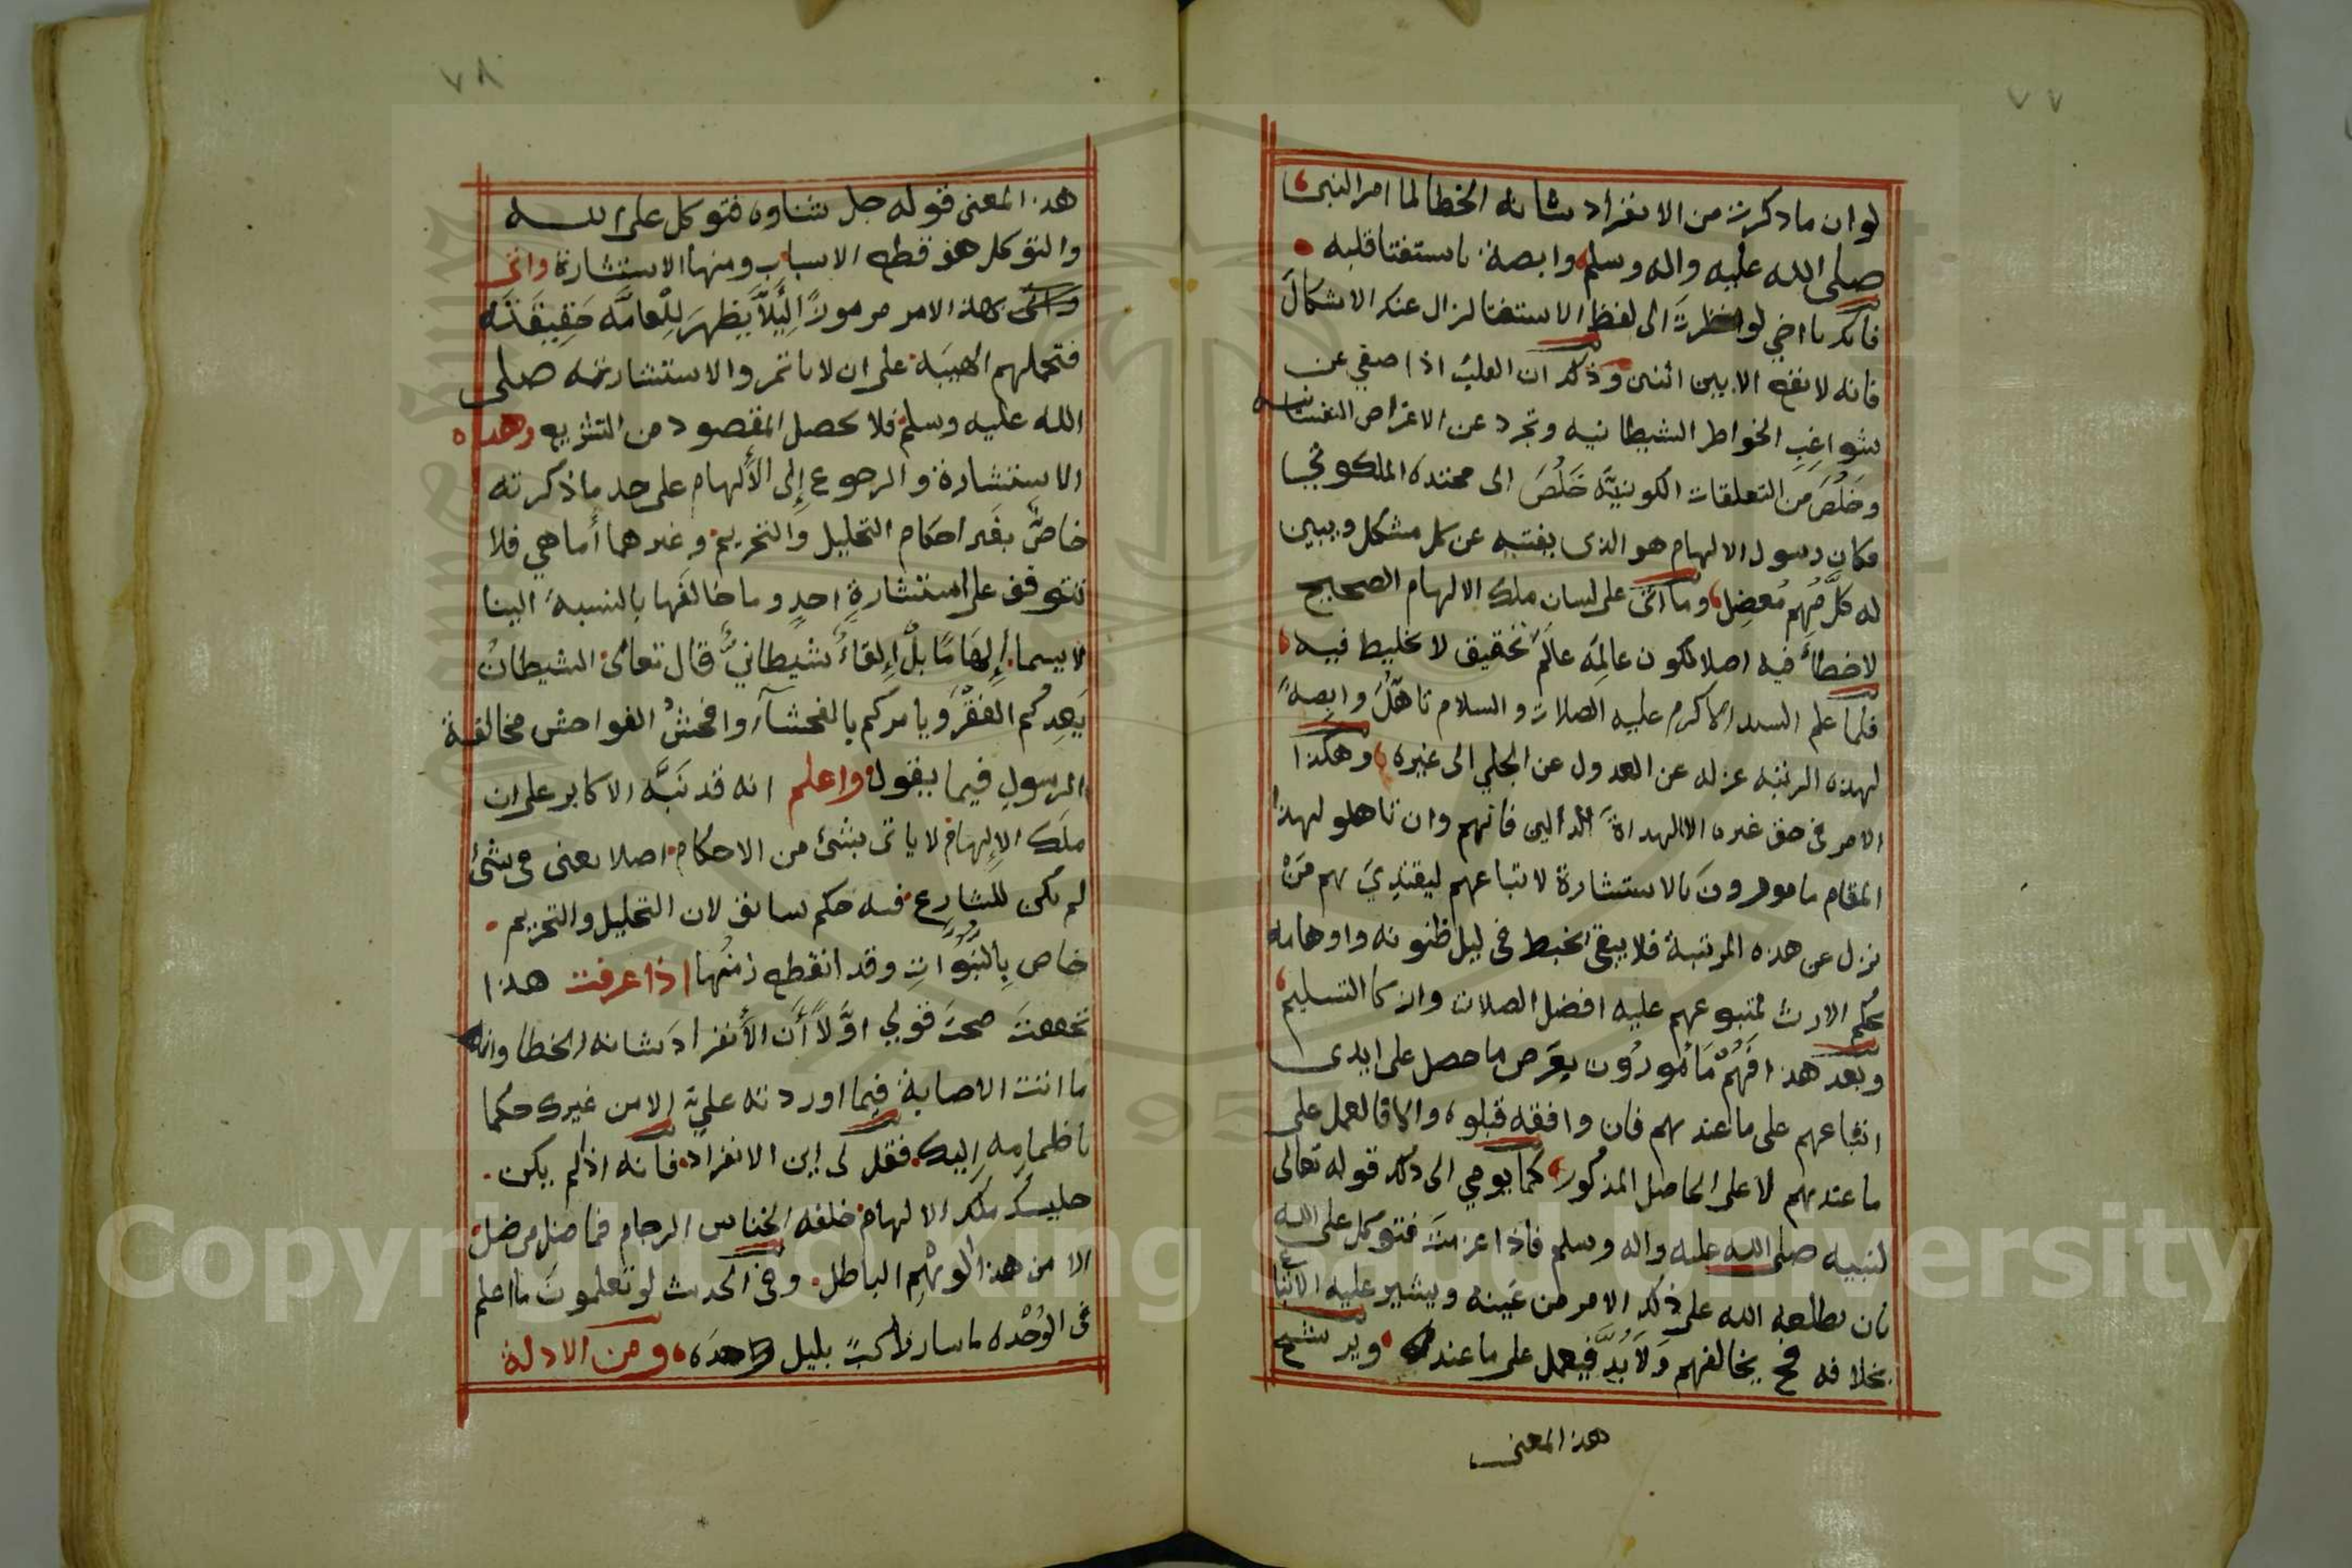 ٧٧
لو ان ما ذكرت من الانفراد شانه الخطا لما امر النبى
صلى الله عليه واله وسلم وابصة باستفتا قلبه
فانك يا اخي لو نظرت الى لفظ الاستفتا لزال عنك الاشكال
فانه لا يقع الا بين اثنين وذلك ان القلب اذا صفي عن
شواغب الخواطر الشيطانيه وتجرد عن الاغراض النفسانيه
وخلُصَ من التعلقات الكونيَّه خَلُصَ الى محتده الملكوتي
فكان رسول الالهام هو الذى يفتيه عن كل مشكل ويبين
له كلَّ مُهم مُعضِل وما اتى على لسان ملك الالهام الصحيح
لا خطأَ فيه اصلا لكون عالمه عالم تحقيق لا تخليط فيه
فلما علم السيد الاكرم عليه الصلات والسلام تاهُّلَ وابصةً
لهذه الرتبه عزله عن العدول عن الجلي الى غيره وهكذا
الامر فى حق غيره الا الهداة الدالين فانهم وان تاهلو لهذا
المقام مامورون بالاستشارة لاتباعهم ليقتدِيَ بهم مَنْ
نزل عن هذه المرتبة فلا يبقى يخبط فى ليل ظنونه واوهامه
بحكم الارث لمتبوعهم عليه افضل الصلات وازكا التسليم
وبعد هذا فَهُمْ مَامُورُون بعَرض ما حصل على ايدى
اتباعهم على ما عندهم فان وافقه قبلوه والا فالعمل على
ما عندهم لا على الحاصل المذكور كما يومي الى ذلك قوله تعالى
لنبيه صلى الله عليه واله وسلم فاذا عزمتَ فتوكل على الله
بان يطلعه الله على ذلك الامر من عَينه ويشير عليه الاتباع
بخلافه فح يخالفهم وَلا بُدَّ فيعمل على ما عنده ويرشح
هذا المعنى
٧٨
هذا المعنى قوله جل شناوه فتوكل على الله
والتوكل هو قطع الاسباب ومنها الاستشارة واتى
هذا الامر مرموزًا لِيَلاَّ يَظهرَ لِلْعامَّه حَقِيقَتَه
فتحملهم الهيبَة على ان لا ياتمرو الاستشارته صلى
الله عليه وسلم فلا يحصل المقصود من التشريع وهذه
الاستشارة والرجوع إلى الألهام على حد ما ذكرته
خاصٌّ بغير احكام التحليل والتحريم وغيرهما أما هي فلا
تتوقف على استشارةِ احدٍ وما خالفها بالنسبة الينا
لا يسما إِلهَامًا بلْ إِلقاءٌ شيطانيٌّ قال تعالى الشيطانُ
يَعِدكُم الفقرَ ويامركم بالفحشآء وافحشُ الفواحش مخالفة
الرسولِ فيما يقول واعلم انه قد نَبَّه الاكابر على ان
ملَك الإلهام لا ياتى بشئ من الاحكام اصلا يعنى فى شئ
لم يكن للشارِع فيه حكم سابق لان التحليل والتحريم
خاص بالنبوات وقد انقطع زمنُها اذا عرفت هذا
تحققتَ صحتَ قولي اوَّلاً أَن الأنفرادَ شانه الخطا وانك
ما اتتك الاصابة فيما اوردته عليَّ إلا من غيرك حكما
فقل لى اين الانفراد فانه اذ لم يكن
جليسُك ملك الالهام خلفه الخناس الرجام فما ضل من ضل
الا من هذا الوَهْمِ الباطل وفى الحديث لو تعلمونَ ما اعلم
فى الوَحْده ما سار راكبٌ بليل وحدَه ومن الادلة